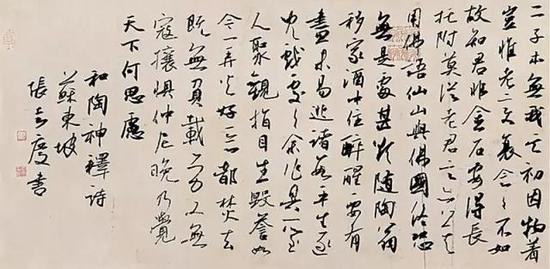 二子本無我其初因物著
豈惟老變衰念念不如
故知君非金石安得長
托附莫從老君言亦莫
用佛語仙山與佛國終恐
無是處甚欲隨陶翁
移家酒中住醉醒要有
盡未易逃諸數平生逐
兒戲處處余作具所至
人聚觀指目生毀譽如
今一弄火好惡都焚去
既無負載勞又無
寇攘懼仲尼晚乃覺
天下何思慮
和陶神釋詩
蘇東坡
張 書